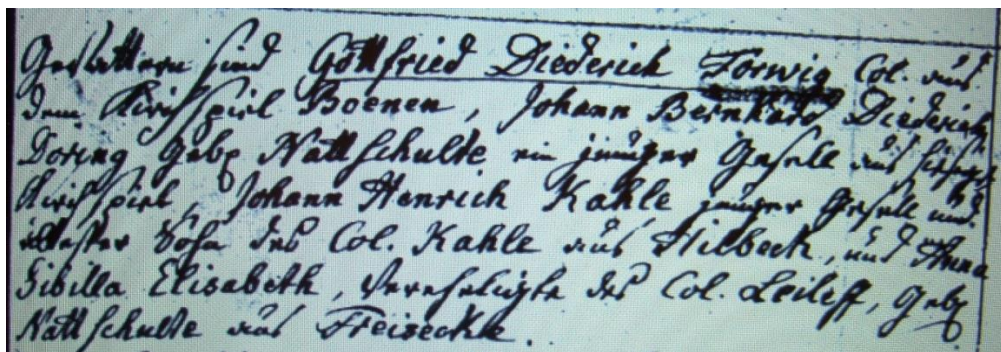 Gevattern sind Gottfried Diederich Forwig Col. aus
dem Kirchspiel Boenen, Johann Bernhard Diederich
Doring geb Nattschulte ein junger Gesell aus
Kirchspiel, Johann Henrich Kahle junger Gesell und
ältester Sohn des Col. Kahle aus Hilbeck, und Anna
Sibilla Elisabeth, Verehligte des Col. Leileff, geb
Nattschulte aus Freiseckle.